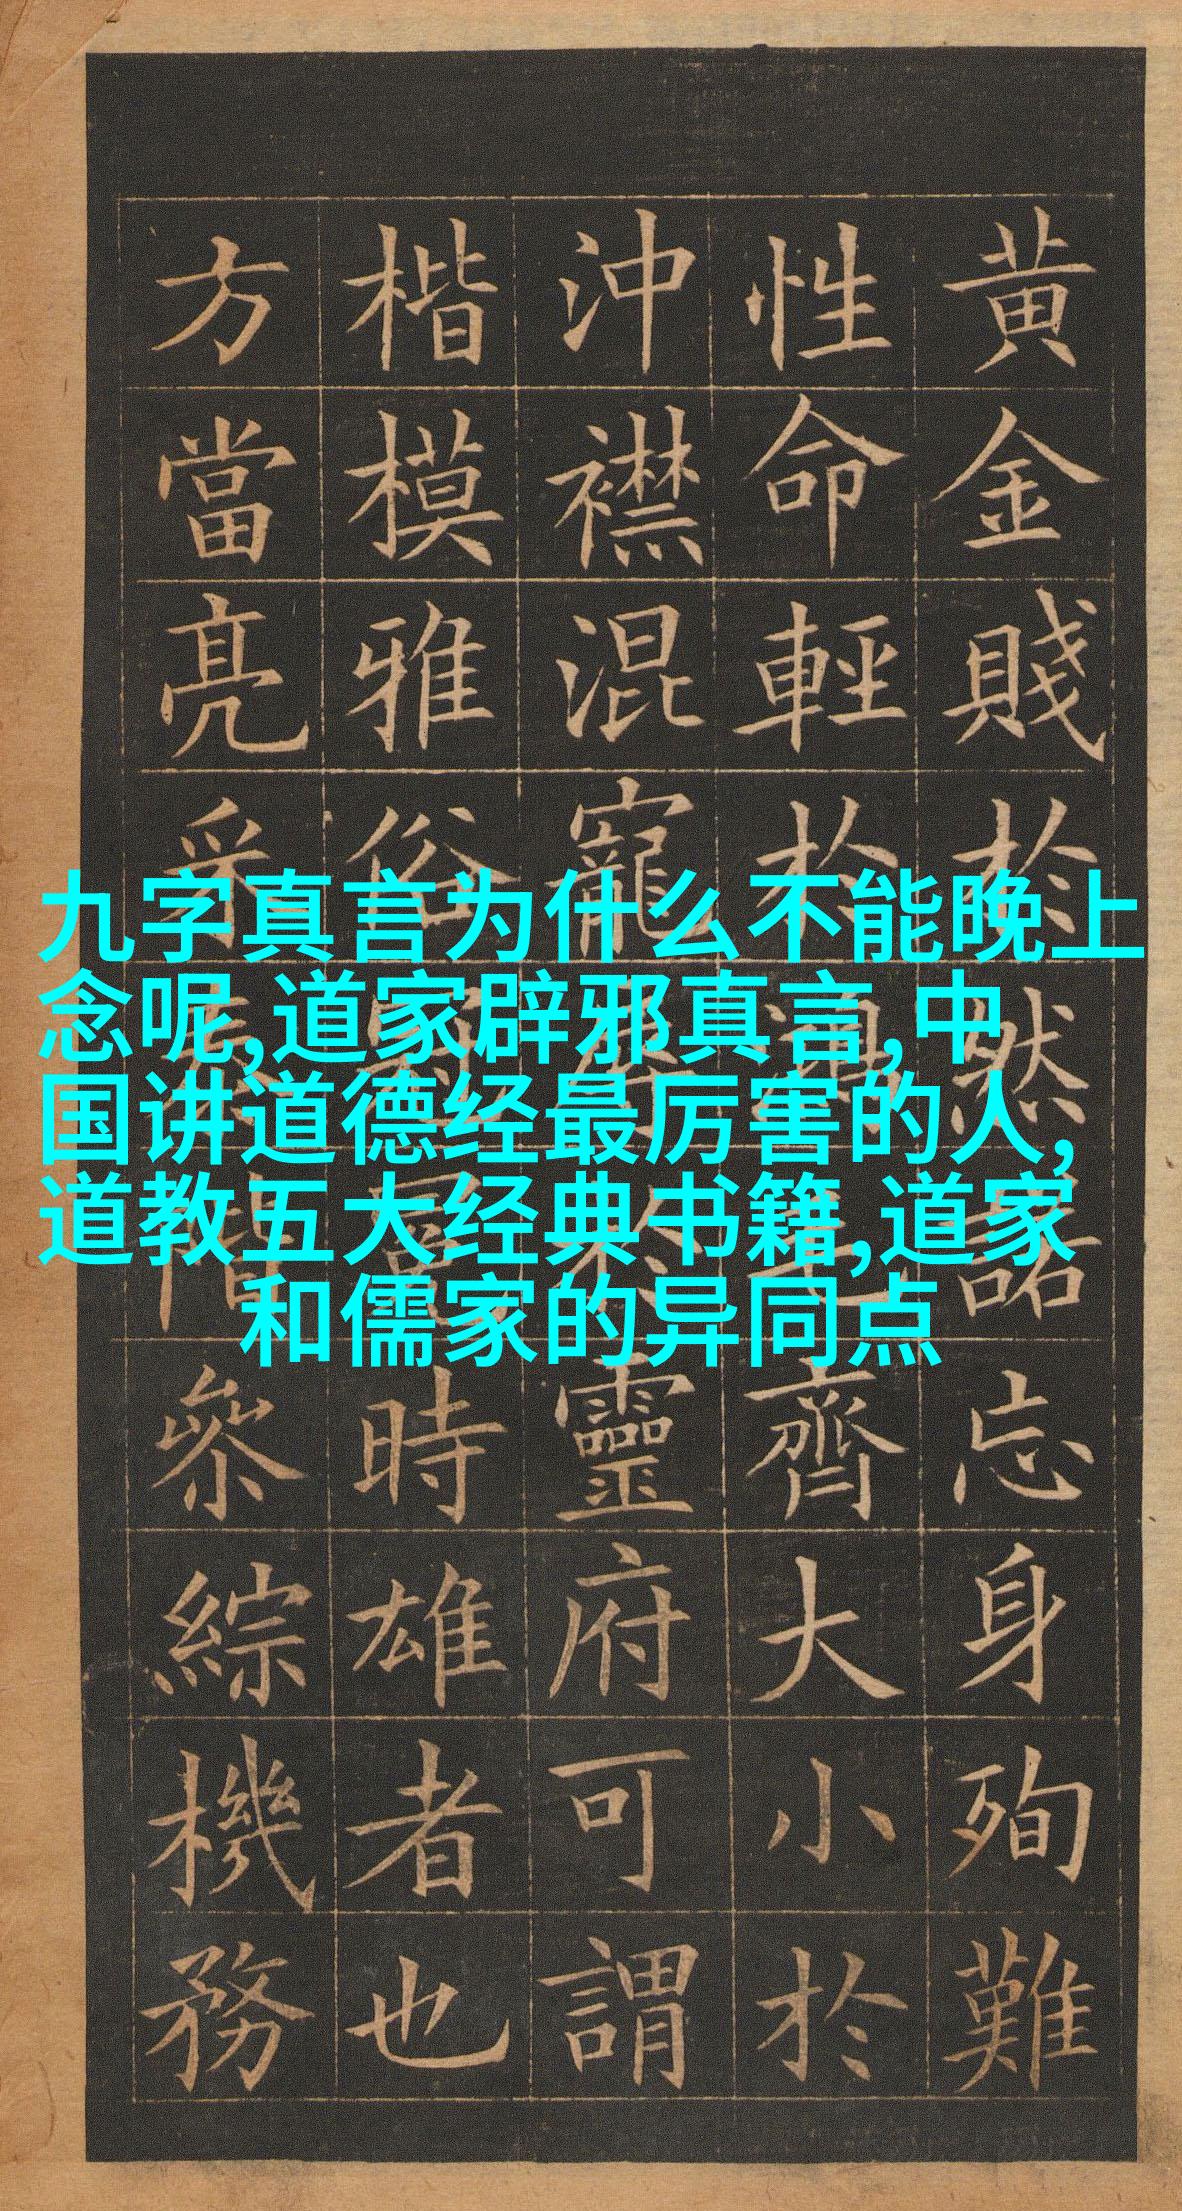 黄金賤於然諾忘身殉難
性命輕於鴻毛齊大小於
沖襟混寵辱於靈府可謂
楷模雅俗冠冕時雄者也
方當亮采泰階參綜機務
九字真言为什么不能晚上
念呢,道家辟邪真言,中
国讲道德经最厉害的人,
道教五大经典书籍,道家
和儒家的异同点